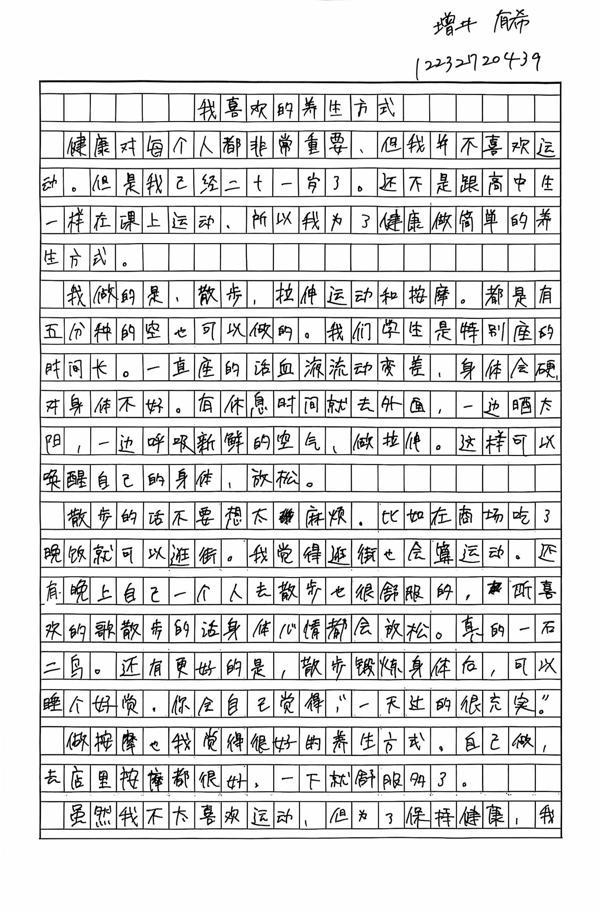 增井 有希
12232720439
我喜欢的养生方式
健康对每个人都非常重要、但我并不喜欢运
动。但是我已经二十一岁了。还不是跟高中生
一样在课上运动、所以我为了健康做简单的养
生方式。
我做的是、散步，拉伸运动和按摩。都是有
五分种的空也可以做的。我们学生是特别座的
时间长。一直座的话血液流动变差、身体会硬,
对身体不好。有休息时间就去外面，一边晒太
阳，一边呼吸新鲜的空气、做拉伸。这样可以
唤醒自己的身体、放松。
散步的话不要想太麻烦．比如在商场吃了
晚饭就可以逛街。我觉得逛街也会算运动。还
有晚上自己一个人去散步也很舒服的，听喜
欢的歌散步的话身体心情都会放松。真的一石
二鸟。还有更好的是，散步锻炼身体后，可以
睡个好觉．你会自己觉得，“一天过的很充实。”
做按摩也我觉得很好的养生方式。自己做，
去店里按摩都很好．一下就舒服多了。
虽然我不太喜欢运动、但为了保持健康，我